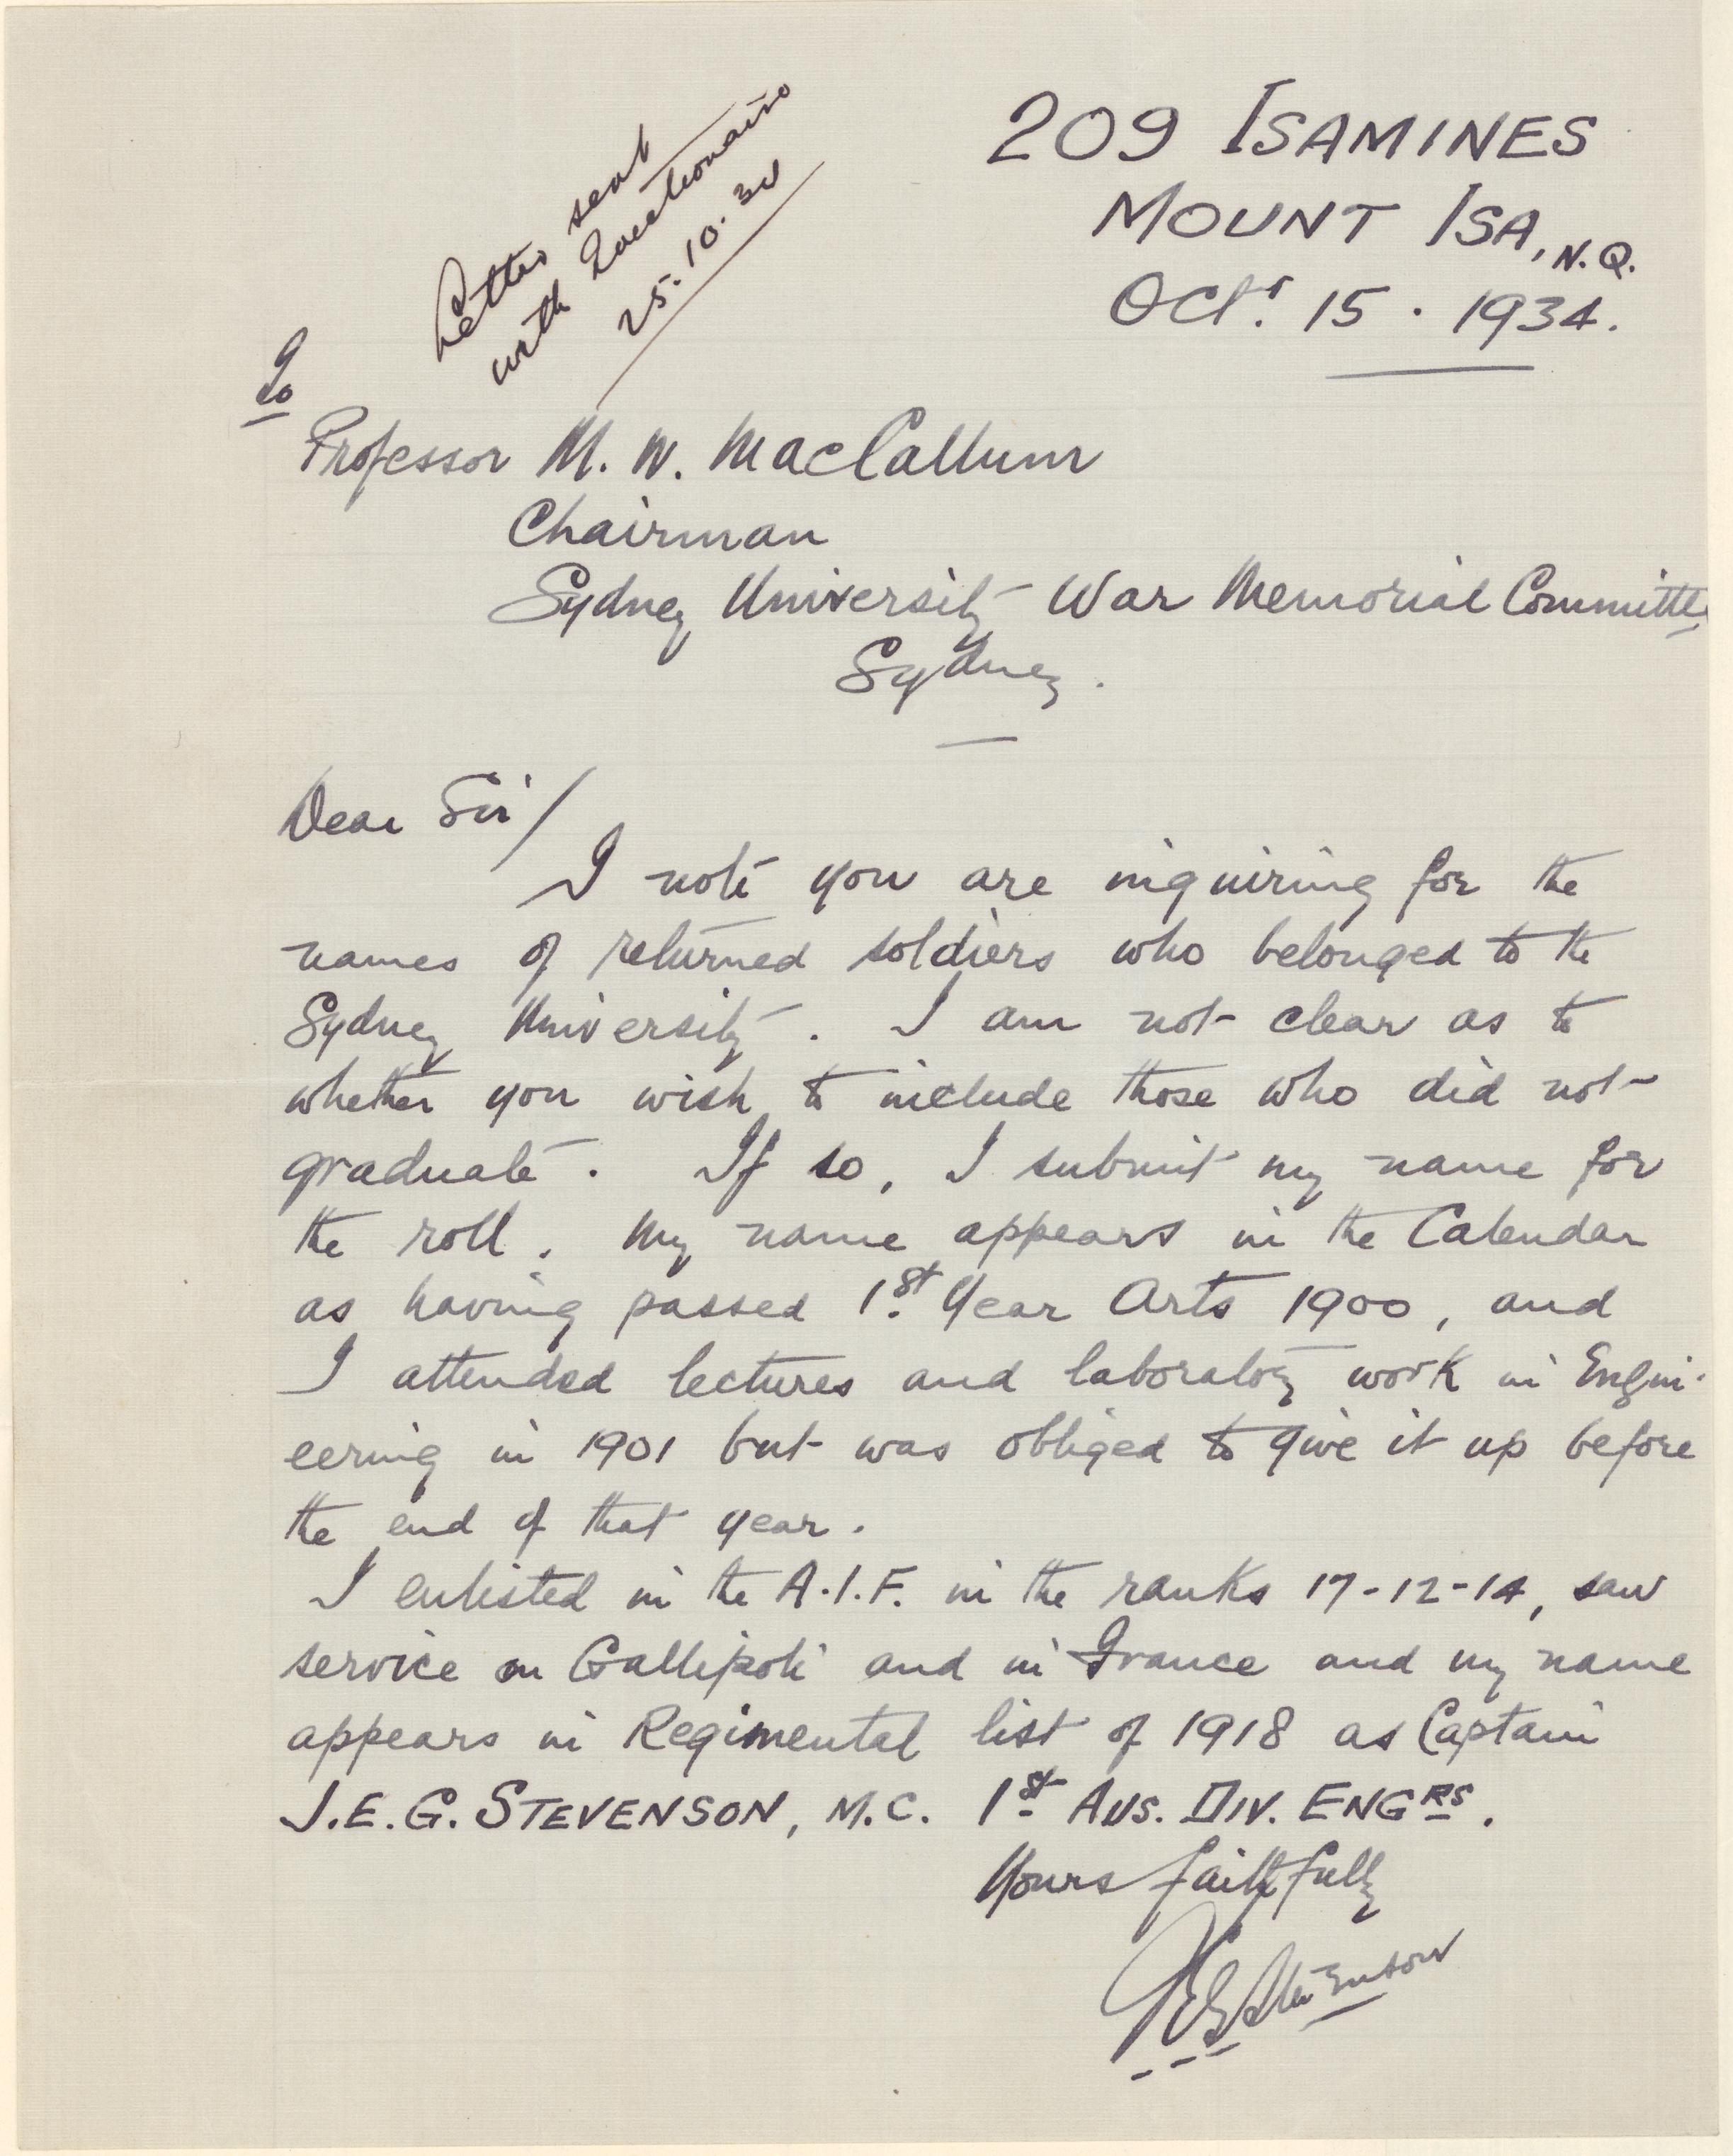 209 ISAMINES
MOUNT ISA, N.Q.
Octr. 15 . 1934.
Letter sent
with Questionaire
25.10.34
To
Professor M. W. MacCallum
Chairman
Sydney University War Memorial Committee
Sydney.
Dear Sir/
I note you are inquiring for the
names of returned soldiers who belonged to the
Sydney University. I am not clear as to
whether you wish to include those who did not
graduate. If so, I submit my name for
the roll. My name appears in the Calendar
as having passed 1st Year Arts 1900, and
I attended lectures and laboratory work in Engin-
eering in 1901 but was obliged to give it up before
the end of that year.
I enlisted in the A.I.F. in the ranks 17-12-14, saw
service on Gallipoli and in France and my name
appears in Regimental list of 1918 as Captain
J.E.G. STEVENSON, M.C. 1st AUS. DIV. ENGRS.
Yours faithfully
JEGStevenson